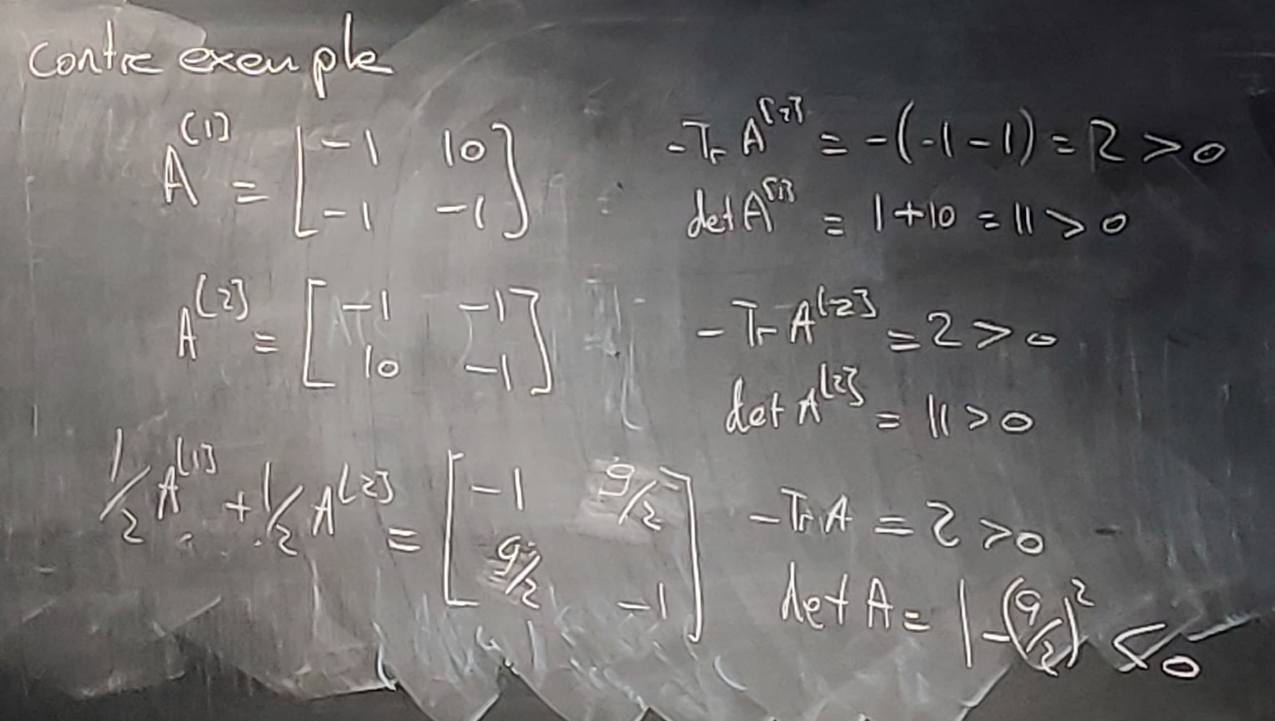 contre exemple
A^[1] = [ -1 10 ; -1 -1 ]
-Tr A^[1] = -(-1-1) = 2 > 0
det A^[1] = 1+10 = 11 > 0
A^[2] = [ -1 -1 ; 10 -1 ]
-Tr A^[2] = 2 > 0
det A^[2] = 11 > 0
1/2 A^[1] + 1/2 A^[2] = [ -1 9/2 ; 9/2 -1 ]
-Tr A = 2 > 0
det A = 1-(9/2)^2 < 0